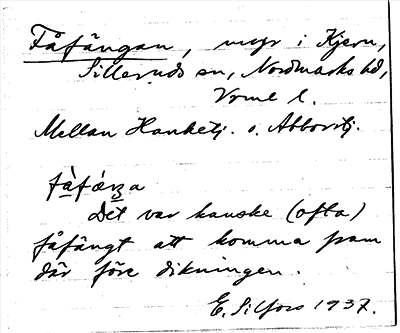 Fåfängan, myr i Kjern,
Sillerud sn, Nordmarks hd,
Vrml l.
Mellan Hanketj. o. Abborrtj.
fàfæŋa
Det var kanske (ofta)
fåfängt att komma fram
där före dikningen.
E. Silfors 1937.